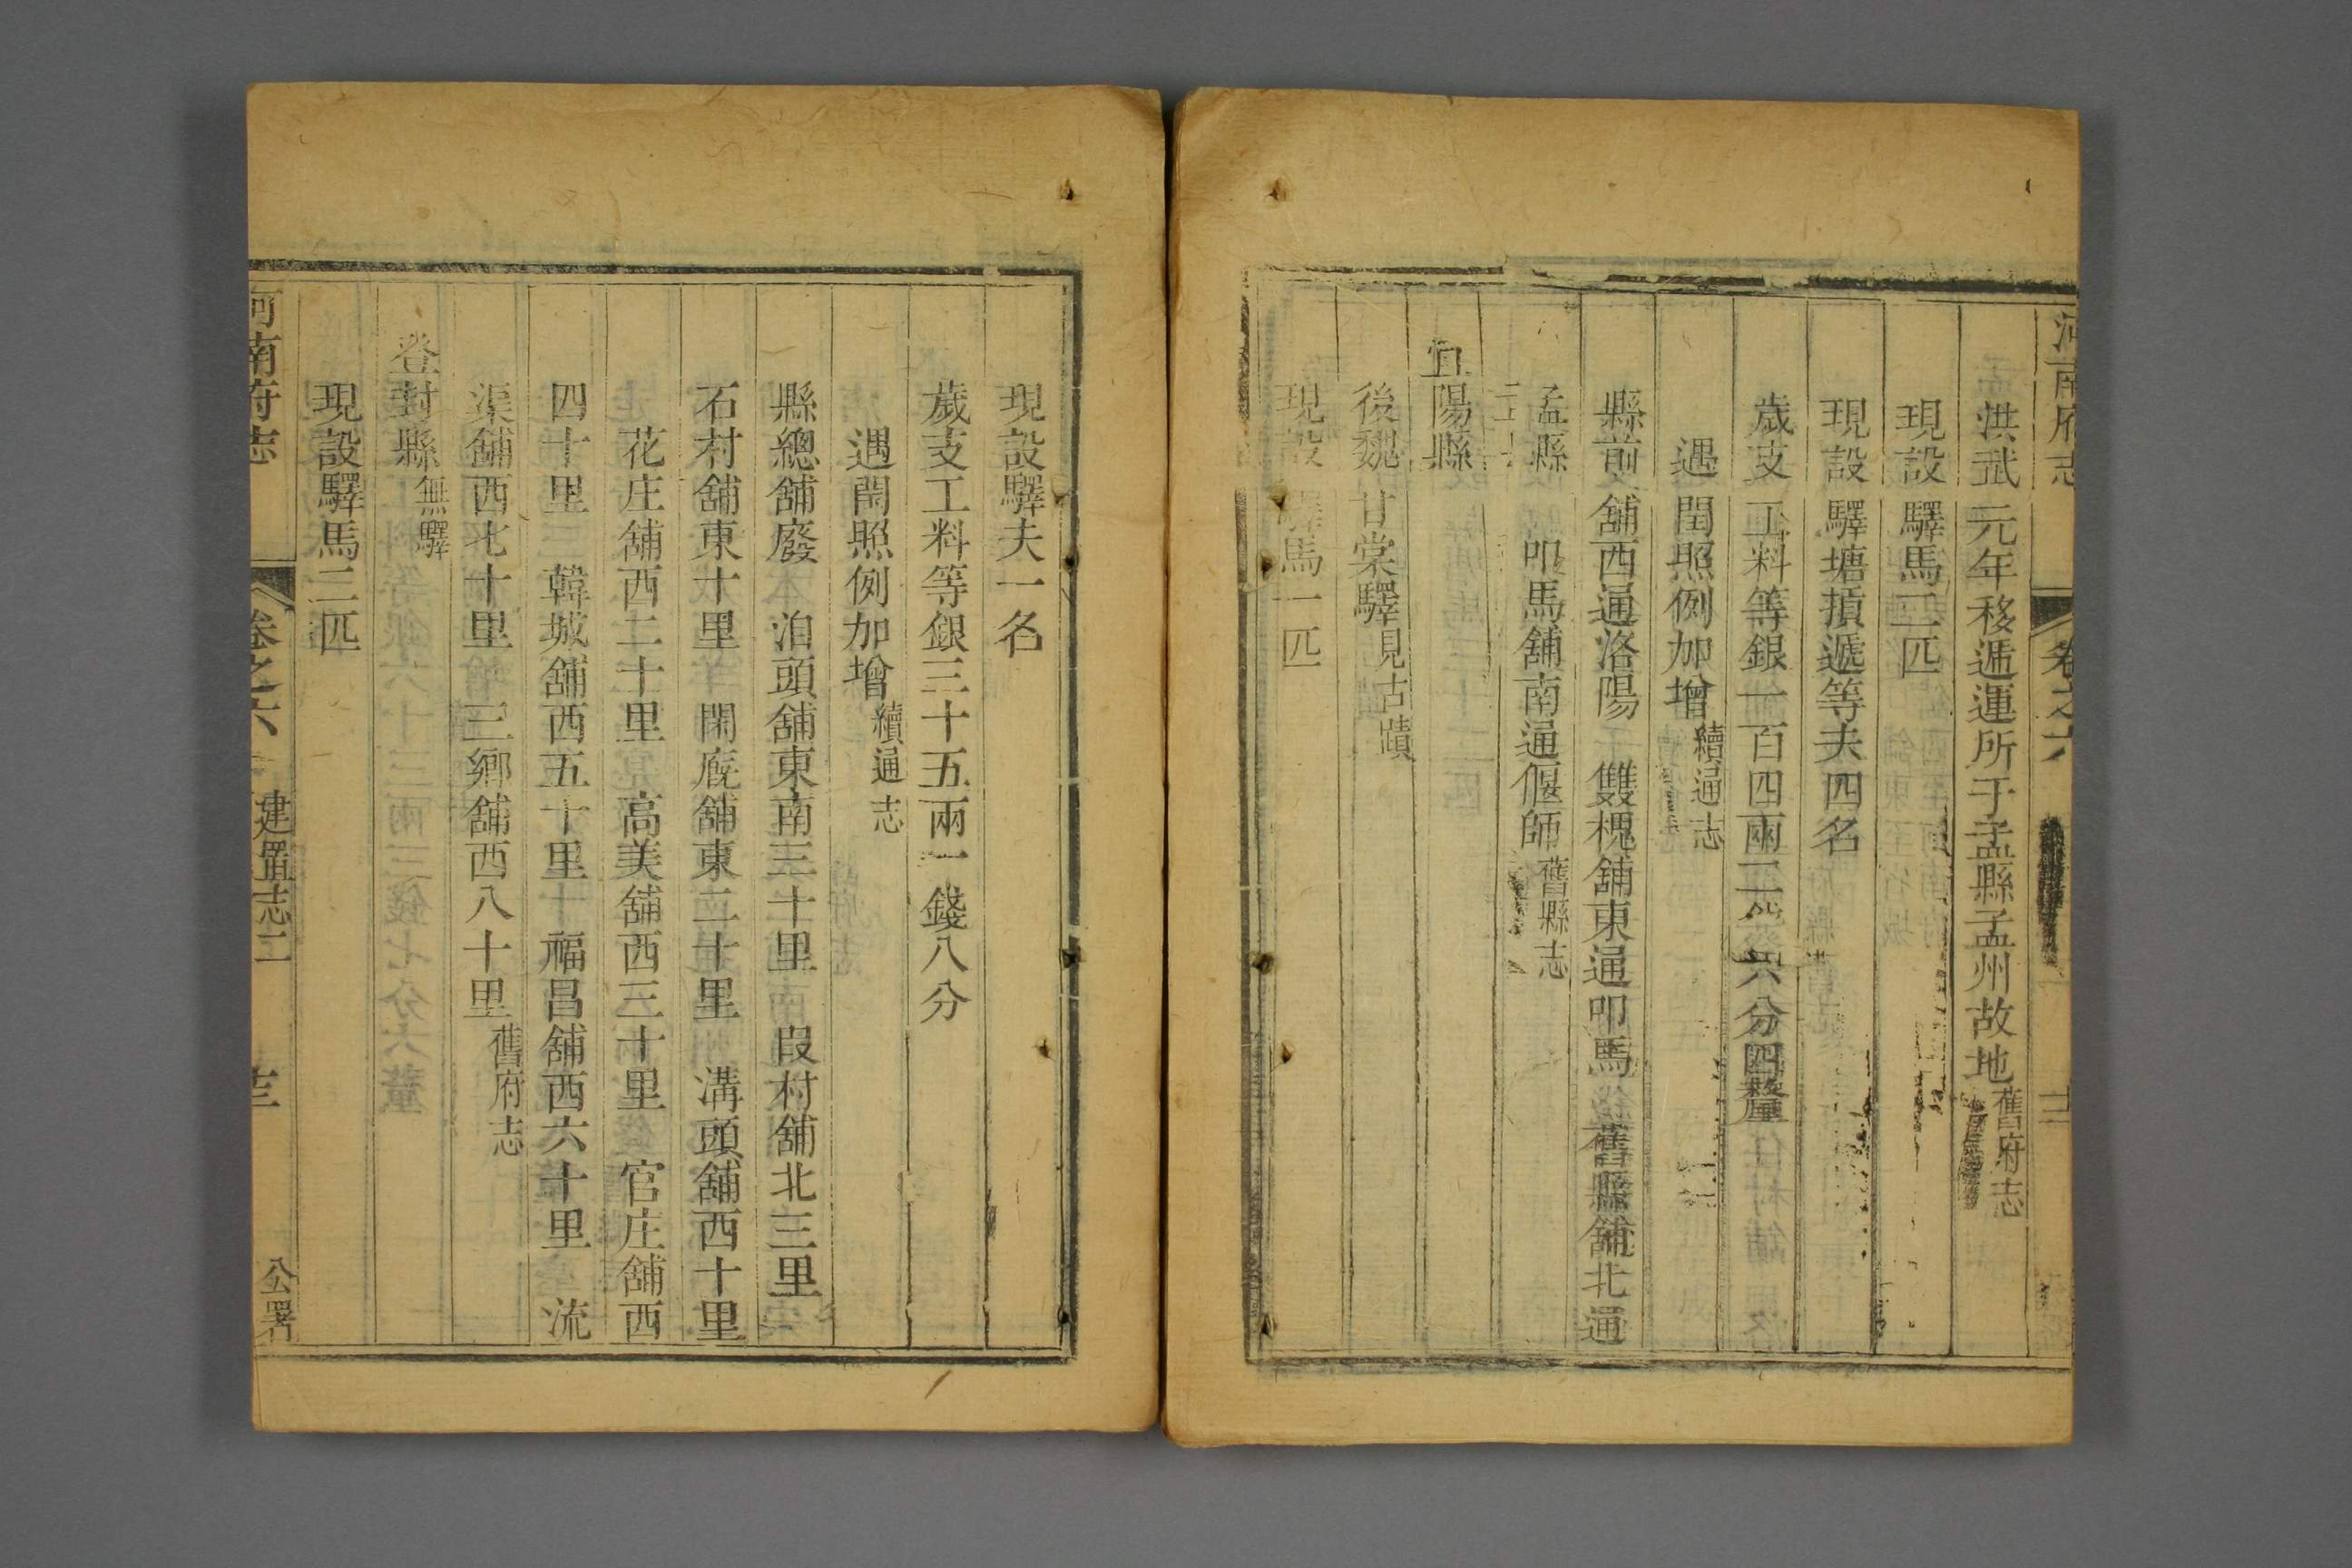 河南府志 卷之六 十二
洪武元年移遞運所于孟縣孟州故地舊府志
現設驛馬二匹
現設驛塘損遞等夫四名
歲支工料等銀一百四兩二錢六分四釐
遇閏照例加增續通志
縣前舖西通洛陽 雙槐舖東通叩馬 舊縣舖北通
孟縣 叩馬舖南通偃師舊縣志
宜陽縣
後魏甘棠驛見古蹟
現設驛馬一匹
現設驛夫一名
歲支工料等銀三十五兩一錢八分
遇閏照例加增續通志
縣總舖廢 洎頭舖東南三十里 叚村舖北三里
石村舖東十里 閑廐舖東二十里 溝頭舖西十里
花庄舖西二十里 高美舖西三十里 官庄舖西
四十里 韓城舖西五十里 福昌舖西六十里 流
渠舖西七十里 三鄉舖西八十里舊府志
登封縣無驛
現設驛馬二匹
河南府志 卷之六 建置志二 公署 十三